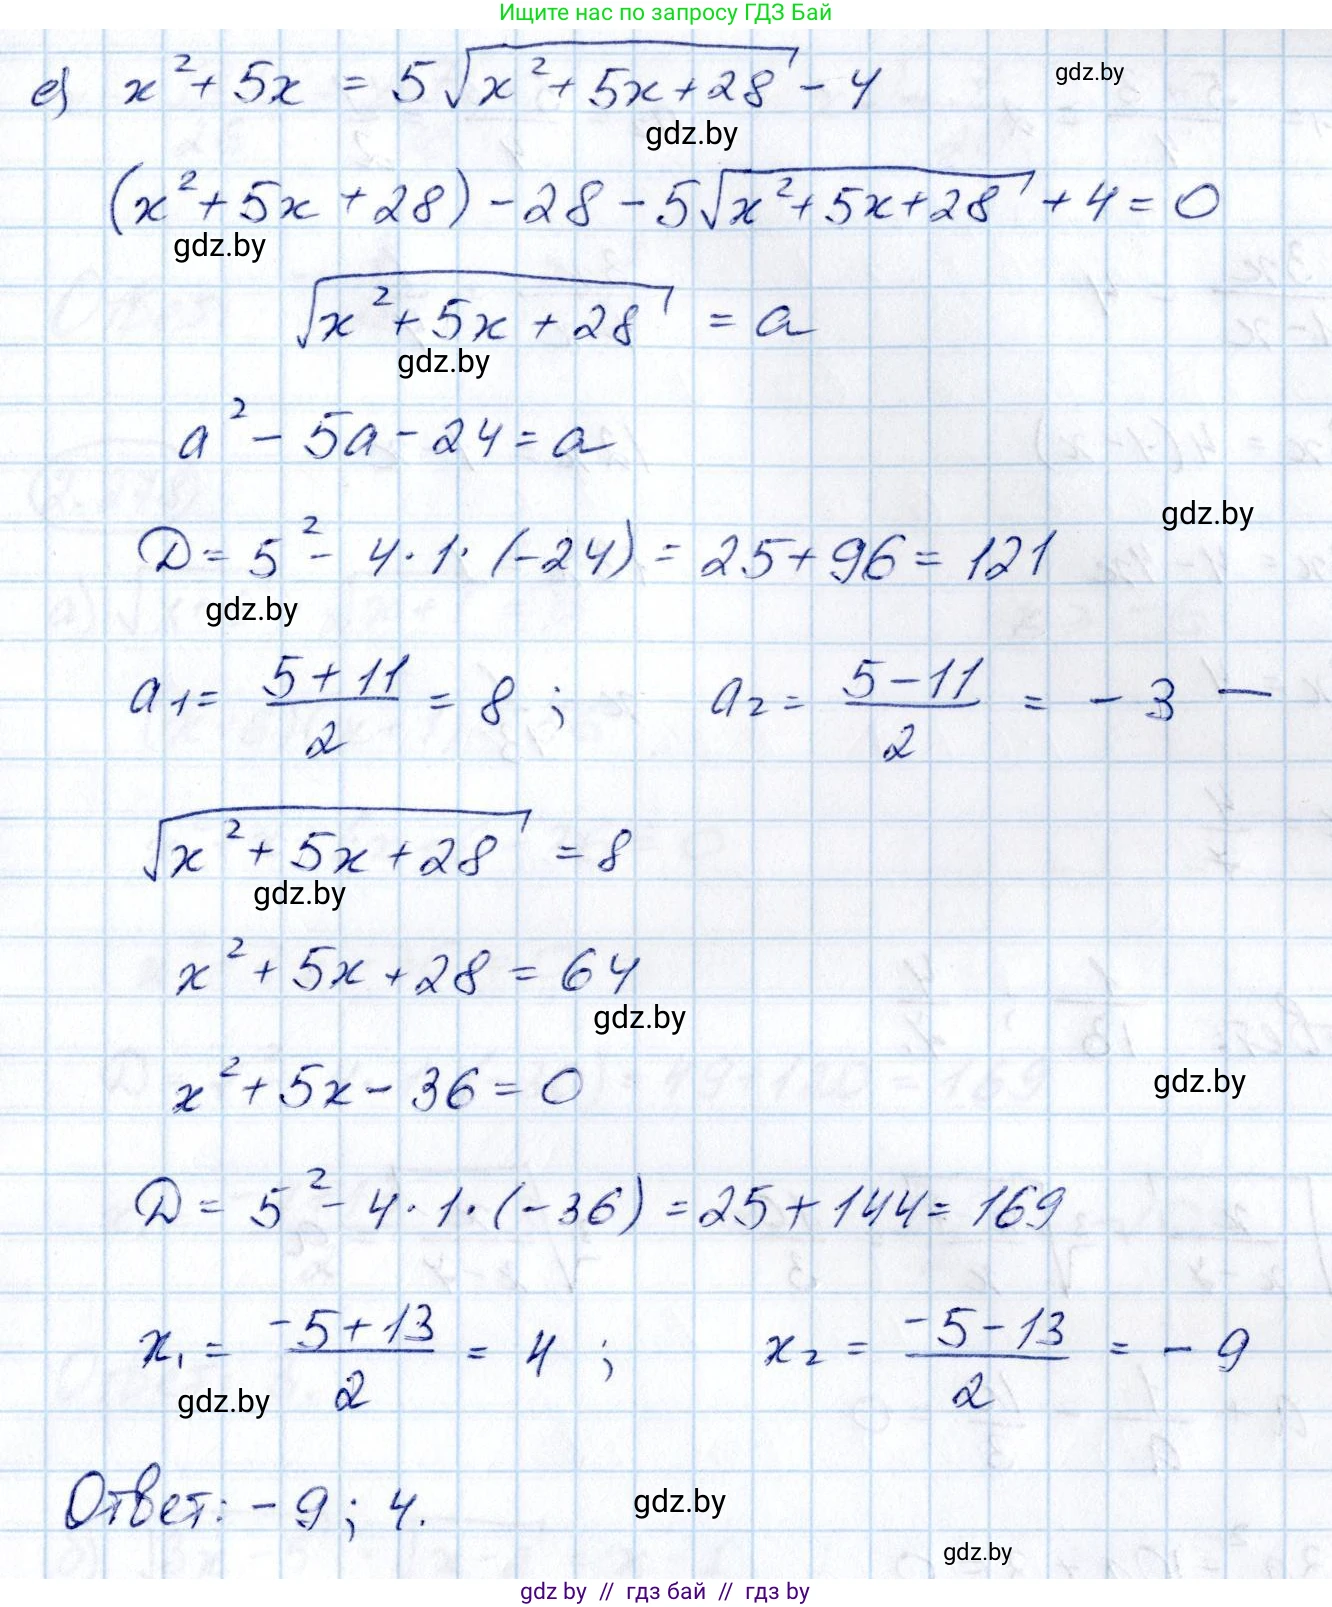 Ищите нас по запросу ГДЗ Бай
е) x² + 5x = 5√(x² + 5x + 28) - 4
gdz.by
gdz.by
(x² + 5x + 28) - 28 - 5√(x² + 5x + 28) + 4 = 0
gdz.by
√(x² + 5x + 28) = a
gdz.by
a² - 5a - 24 = a
gdz.by
D = 5² - 4 · 1 · (-24) = 25 + 96 = 121
gdz.by
a₁ = (5 + 11)/2 = 8 ; a₂ = (5 - 11)/2 = - 3 —
√(x² + 5x + 28) = 8
gdz.by
x² + 5x + 28 = 64
gdz.by
x² + 5x - 36 = 0
gdz.by
D = 5² - 4 · 1 · (-36) = 25 + 144 = 169
x₁ = (-5 + 13)/2 = 4 ; x₂ = (-5 - 13)/2 = - 9
gdz.by
Ответ: - 9 ; 4.
gdz.by
gdz.by
gdz by // гдз бай // гдз by